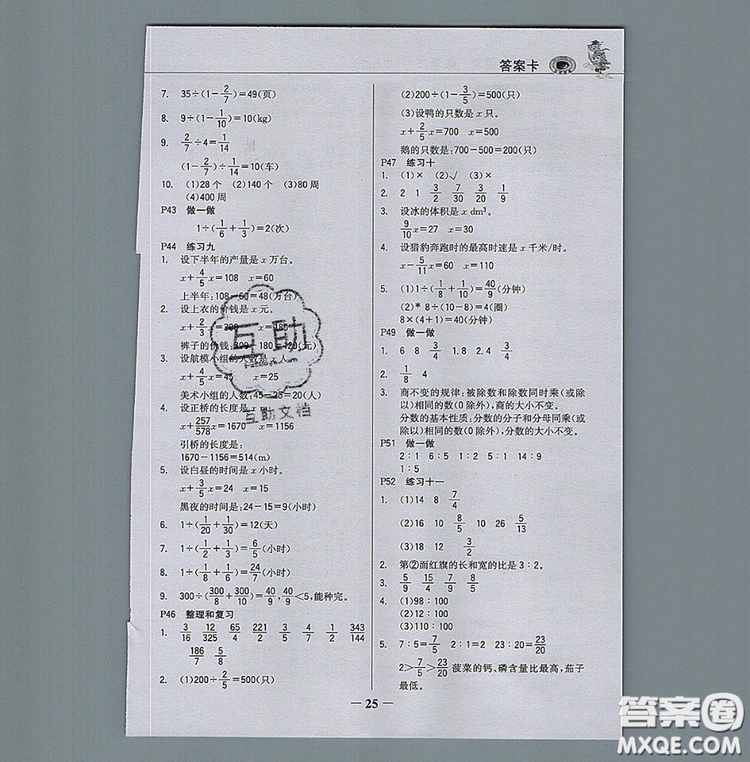 答案卡
7. 35÷(1-2/7)=49(页)
8. 9÷(1-1/10)=10(kg)
9. 2/7÷4=1/14
(1-2/7)÷1/14=10(车)
10. (1)28个 (2)140个 (3)80周
(4)400周
P43 做一做
1÷(1/6+1/3)=2(次)
P44 练习九
1. 设下半年的产量是x万台。
x+4/5x=108 x=60
上半年:108-60=48(万台)
2. 设上衣的价钱是x元。
x+2/3x=300 x=180
裤子的价钱:300-180=120(元)
3. 设航模小组的人数是x人。
x+4/5x=45 x=25
美术小组的人数:45-25=20(人)
4. 设正桥的长度是
x+257/578x=1670 x=1156
引桥的长度是:
1670-1156=514(m)
5. 设白昼的时间是x小时。
x+3/5x=24 x=15
黑夜的时间是:24-15=9(小时)
6. 1÷(1/20+1/30)=12(天)
7. 1÷(1/2+1/3)=6/5(小时)
8. 1÷(1/8+1/6)=24/7(小时)
9. 300÷(300/8+300/10)=40/9,40/9<5,能种完。
P46 整理和复习
1. 3/16 12/325 65/4 221/2 3/5 4/7 1/2 343/144
186/7 5/8
2. (1)200÷2/5=500(只)
(2)200÷(1-3/5)=500(只)
(3)设鸭的只数是x只。
x+2/5x=700 x=500
鹅的只数是:700-500=200(只)
P47 练习十
1. (1)× (2)√ (3)×
2. 2 1 3/2 7/30 3/20 1/9
3. 设冰的体积是x dm³。
9/10x=27 x=30
4. 设猎豹奔跑时的最高时速是x千米/时。
x-5/11x=60 x=110
5. (1)1÷(1/8+1/10)=40/9(分钟)
(2)* 8÷(10-8)=4(圈)
8×(4+1)=40(分钟)
P49 做一做
1. 6 8 3/4 1.8 2.4 3/4
2. 1/8 4
3. 商不变的规律:被除数和除数同时乘(或
除以)相同的数(0除外),商的大小不变。
分数的基本性质:分数的分子和分母同乘(或
除以)相同的数(0除外),分数的大小不变。
P51 做一做
2:1 6:5 1:2 5:1 14:9
1:5
P52 练习十一
1. (1)14 8 7/4
(2)16 10 8/5 10 26 5/13
(3)18 12 3/2
2. 第②面红旗的长和宽的比是3:2。
3. 5/9 15/4 7/5 3/4
4. (1)98:100
(2)12:100
(3)110:100
5. 7:5=7/5 2:1=2 23:20=23/20
2>7/5>23/20 菠菜的钙、磷含量比最高,茄子
最低。
互助
互助文档
— 25 —
答案圈
MXQE.COM